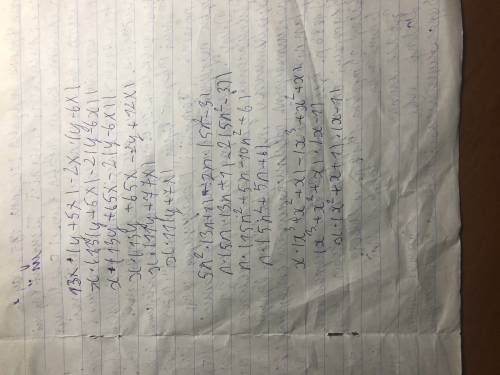 13x·(y+5x)-2x·(y-6x)
x·(13(y+5x)-2(y-6x))
x·(13y+65x-2(y-6x))
x·(13y+65x-2y+12x)
x·(11y+77x)
x·11(y+7x)
5n²·(3n+1)-2n·(5n²-3)
n·(5n·(3n+1)-2(5n²-3))
n·(15n²+5n-10n²+6)
n·(5n²+5n+6)
x·(x³+x²+x)-(x³+x²+x)
(x³+x²+x)·(x-1)
x·(x²+x+1)·(x-1)